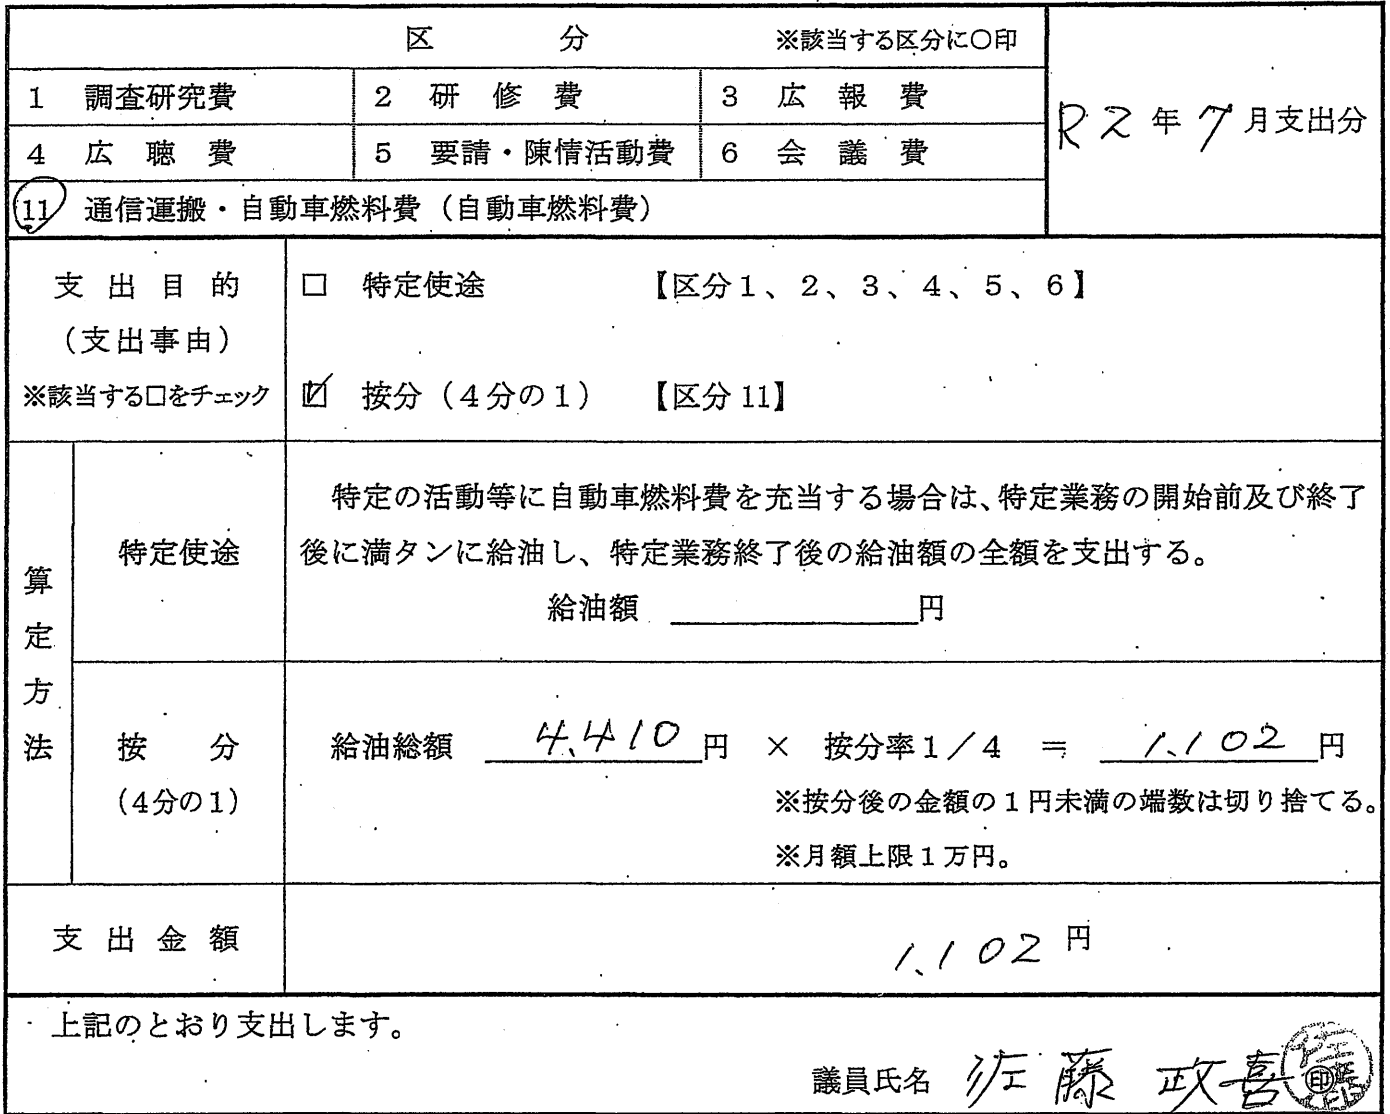 区 分 ※該当する区分に○印
1 調査研究費 2 研修費 3 広報費
R2年7月支出分
4 広聴費 5 要請・陳情活動費 6 会議費
11 通信運搬・自動車燃料費（自動車燃料費）
支出目的
（支出事由）
※該当する□をチェック
□ 特定使途 【区分1、2、3、4、5、6】
☑ 按分（4分の1） 【区分11】
算定方法
特定使途
特定の活動等に自動車燃料費を充当する場合は、特定業務の開始前及び終了
後に満タンに給油し、特定業務終了後の給油額の全額を支出する。
給油額 ＿＿＿＿円
按分
（4分の1）
給油総額 4.410円 × 按分率1／4 ＝ 1.102円
※按分後の金額の1円未満の端数は切り捨てる。
※月額上限1万円。
支出金額
1.102円
上記のとおり支出します。
議員氏名 佐藤 政喜 印